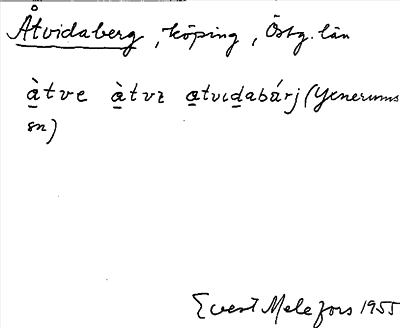 Åtvidaberg, köping, Östg. län
àtve àtvz atvıdabárj (Yenerums
sn)
Evert Melefors 1955